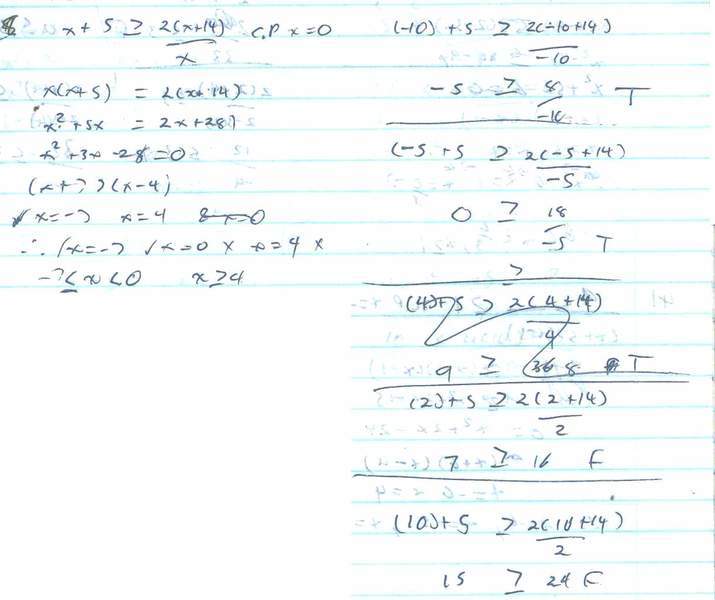 x + 5 ≥ 2(x+14)/x C.P x=0
x(x+5) = 2(x+14)
x² + 5x = 2x+28
x² + 3x - 28 = 0
(x+7)(x-4)
x=-7 x=4 x=0
∴ x=-7 x=0 x=4
-7 ≤ x < 0 x ≥ 4
(-10) + 5 ≥ 2(-10+14)/-10
-5 ≥ 8/-10 T
(-5 + 5 ≥ 2(-5+14)/-5
0 ≥ 18/-5 T
(4)+5 ≥ 2(4+14)/4
9 ≥ 8 T
(2)+5 ≥ 2(2+14)/2
7 ≥ 16 F
(10)+5 ≥ 2(10+14)/2
15 ≥ 24 F